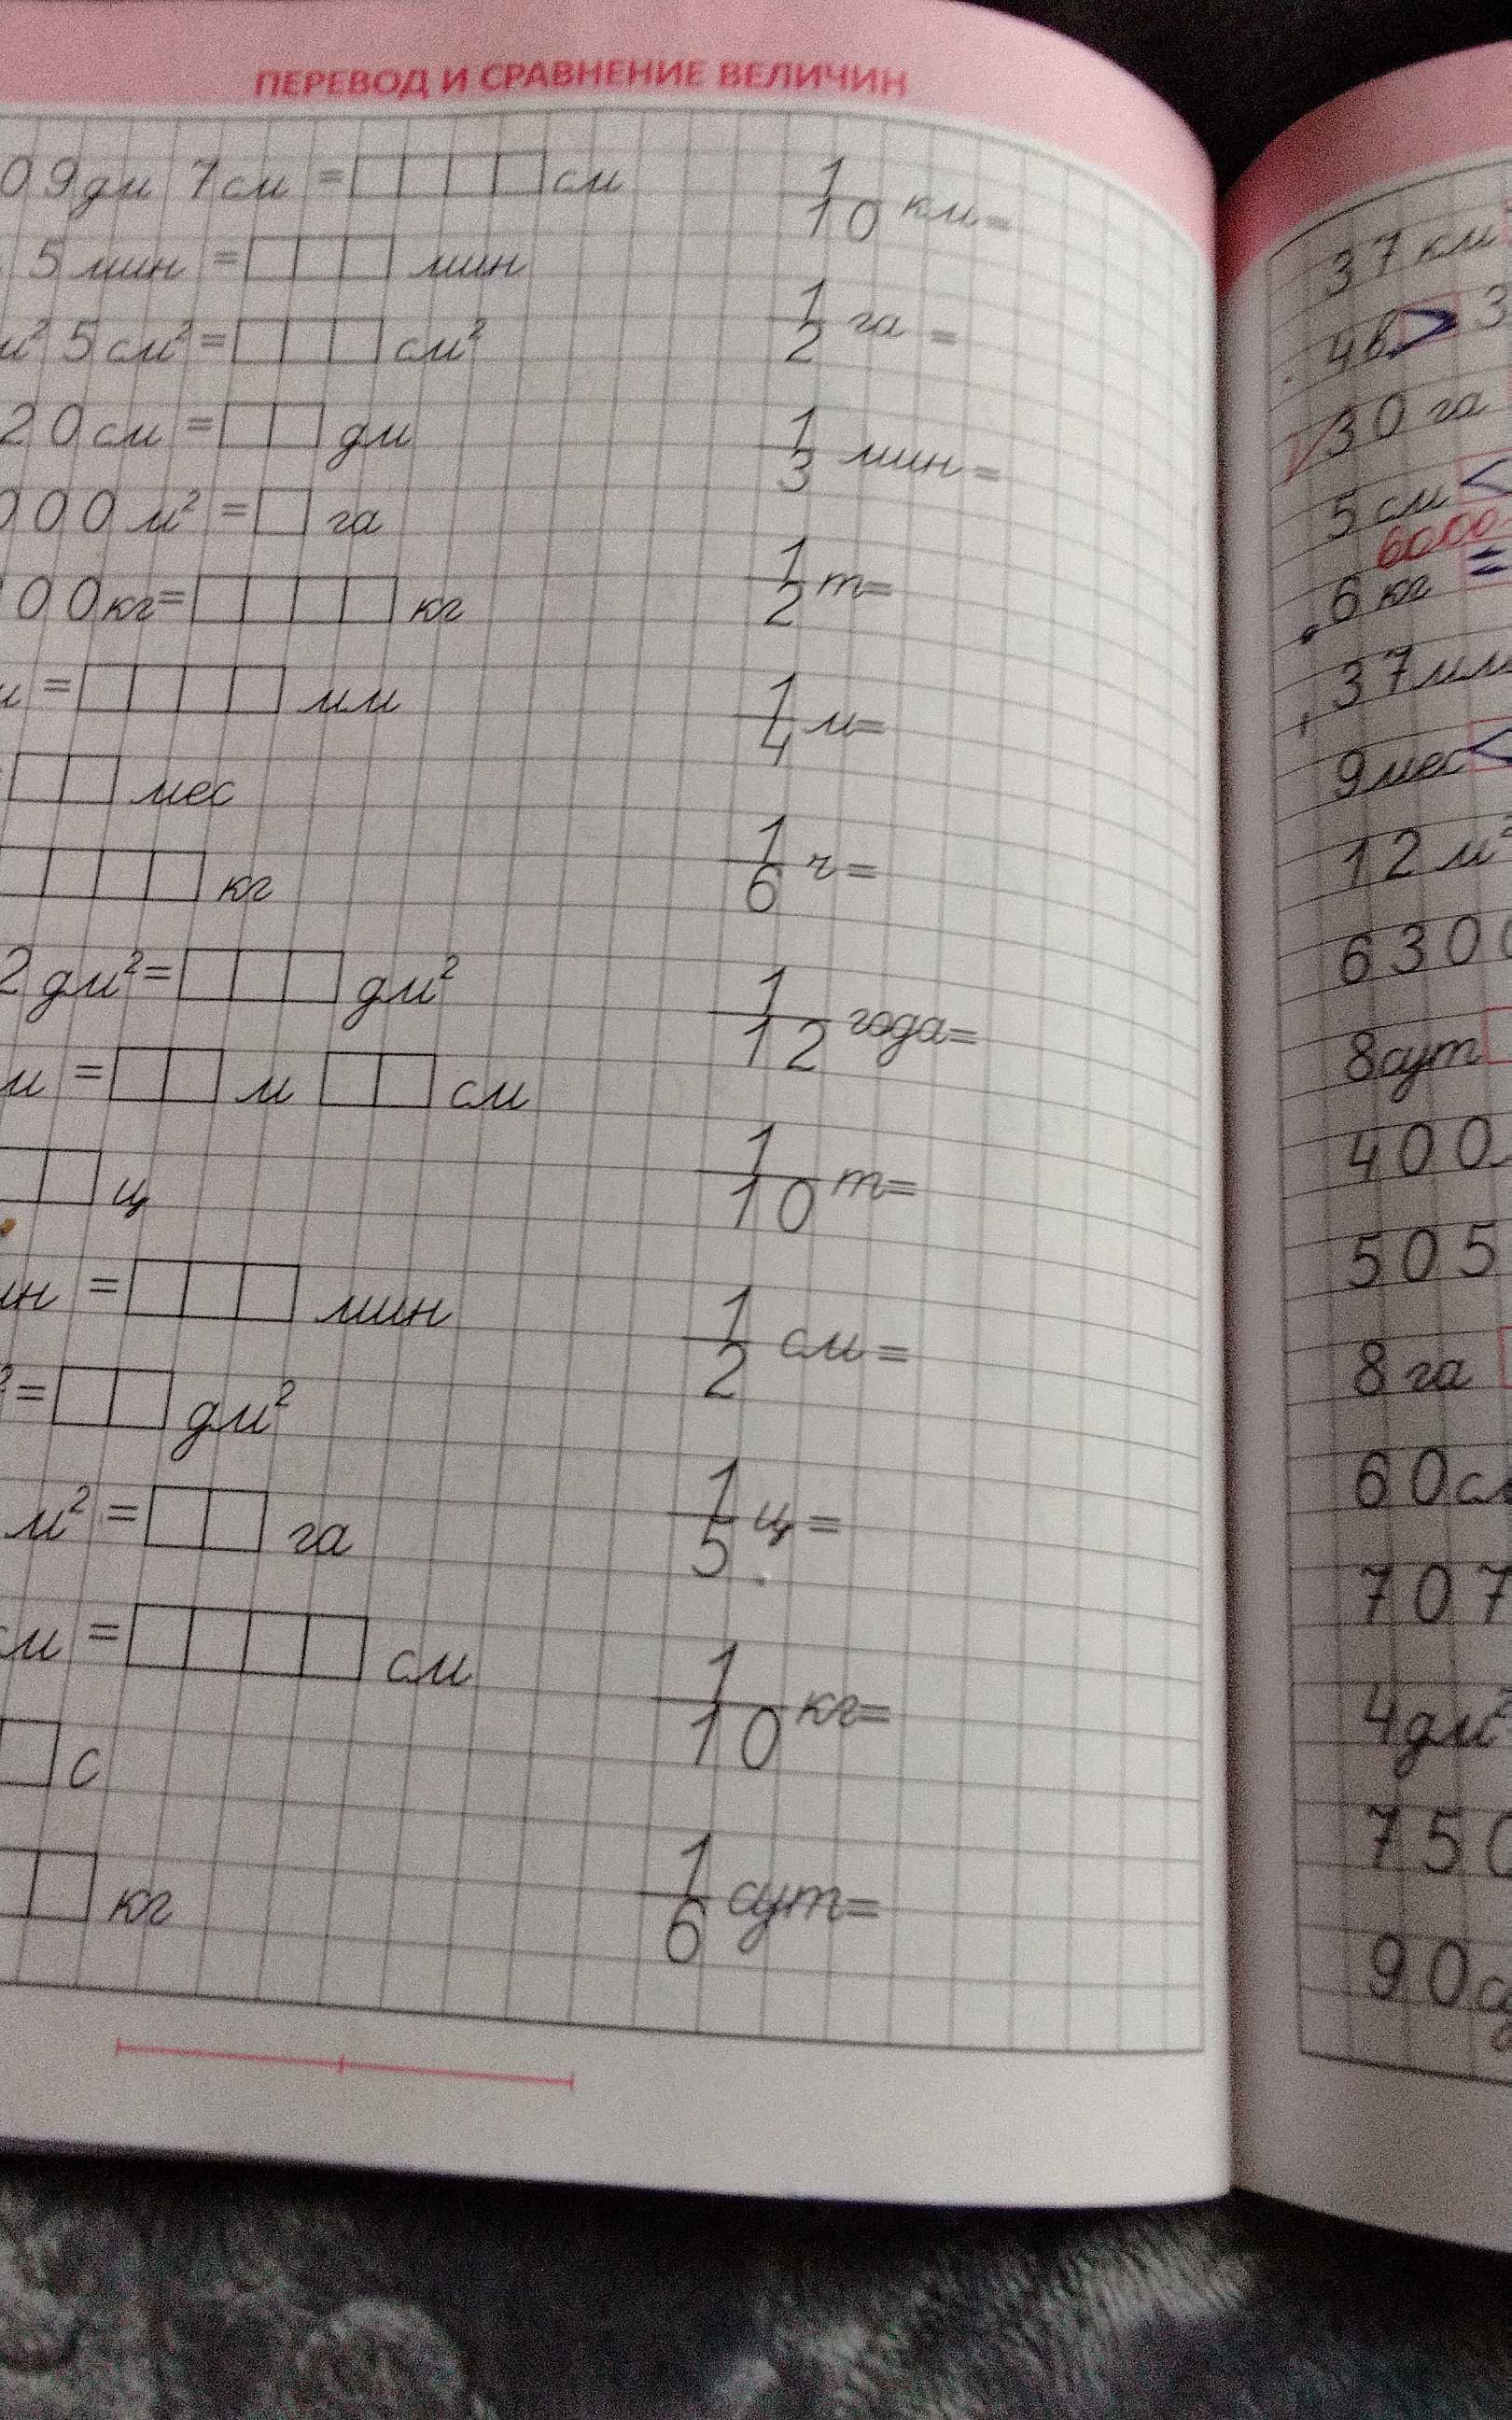 ПЕРЕВОД И СРАВНЕНИЕ ВЕЛИЧИН
09 дм 7 см = см
5 мин = мин
м² 5 см² = см²
20 см = дм
000 м² = га
00 кг = кг
= мм
мес
кг
2 дм² = дм²
м = м см
ц
ин = мин
² = дм²
м² = га
см = см
с
кг
1/10 км =
1/2 га =
1/3 мин =
1/2 т =
1/4 м =
1/6 ч =
1/12 года =
1/10 т =
1/2 см =
1/5 ц =
1/10 кг =
1/6 сут =
37 км
4 в > 3
30 га
5 см <
6000
6 кг =
37 мм
9 мес <
12 м²
6300
8 сут
400
505
8 га
60 с
707
4 дм²
750
90